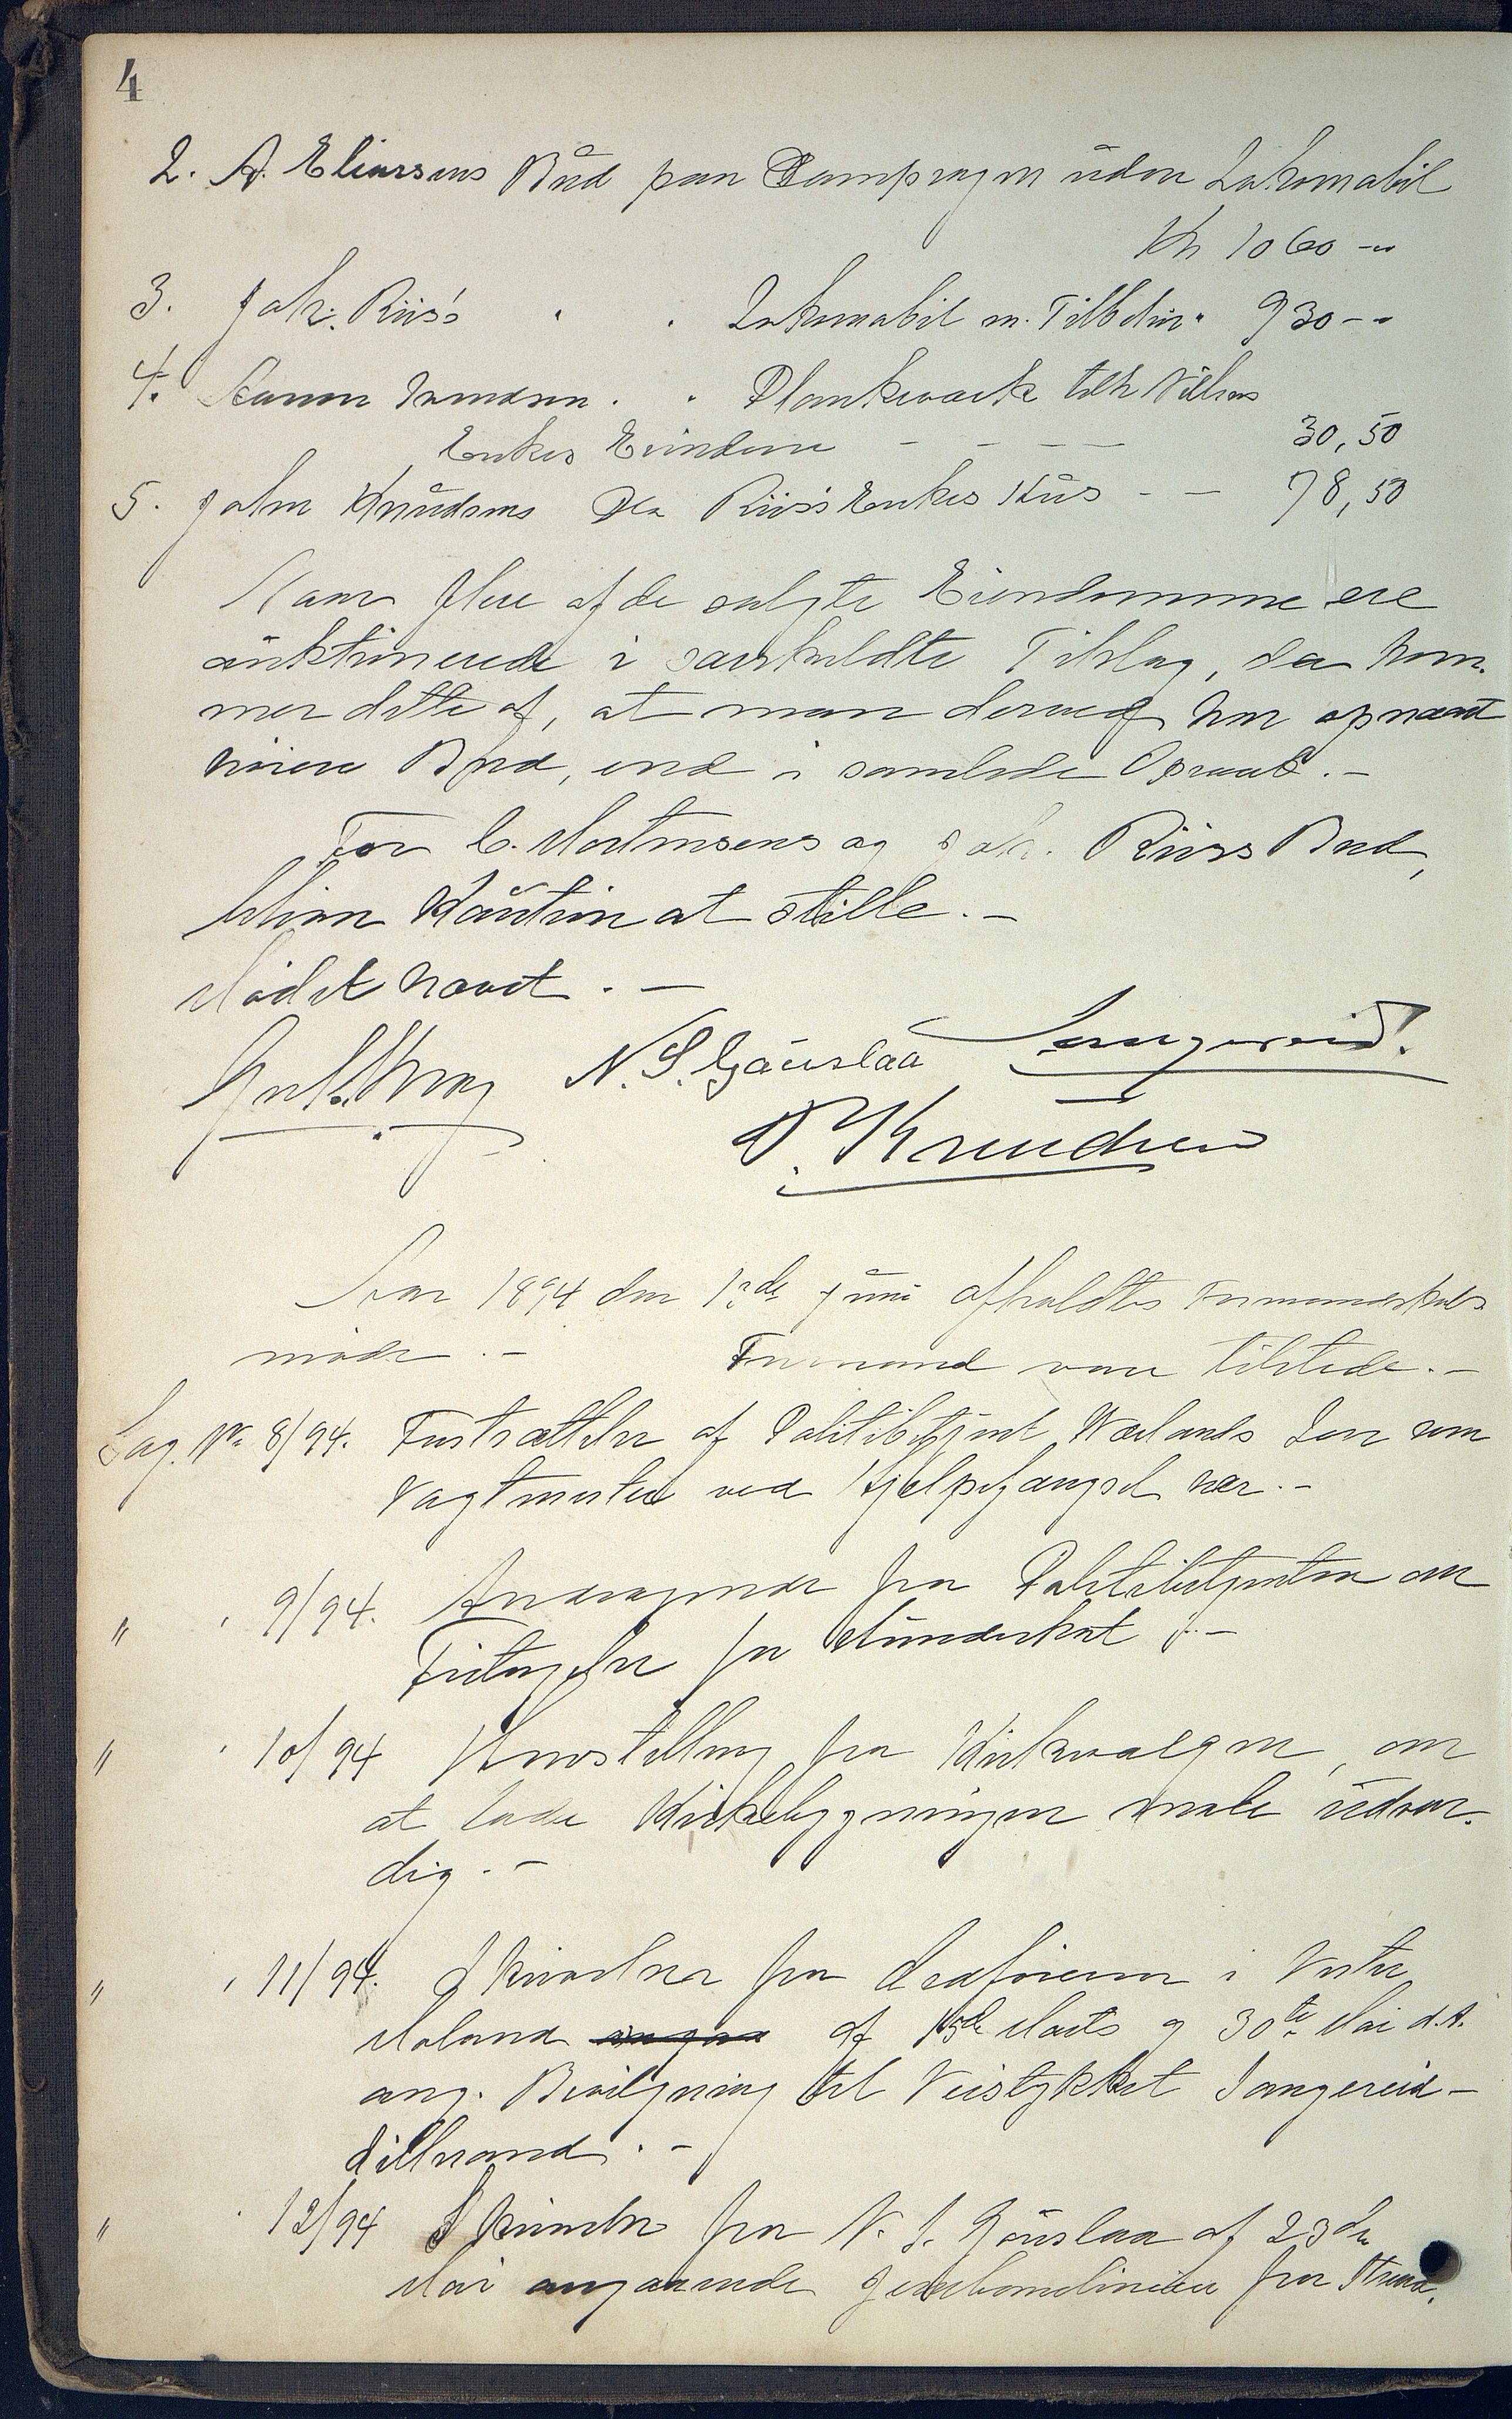 4
2. A. Eliassens Bud paa Dampsagen uden Lokomobil
Kr 1060 -"-
3. Joh: Riis's " " Lokomobil m. Tilbehør " 930 - -
4. Aanon " " Plankeværk tilh Nilsens
Enkes Eiendom - - - - 30,50
5. John Knudsens Do Riis's Enkes Hus - - 78,50
Naar flere af de solgte Eiendomme ere
auktionerede i særskildte Tilslag, da kom-
mer dette af, at man derved har opnaaet
høiere Bud, end i samlede Opraab. -
For C. Mortensens og Joh. Riis's Bud,
bliver Kaution at stille. -
Mødet hævet. -
N. S. Gauslaa Tangereid.
O. Knudsen
Aar 1894 den 1ste Juni afholdtes Formandskabs
møde. - Formænd vare tilstede. -
Sag. No 8/94. Fastsættelse af Politibetjent Wælands Løn som
Vagtmester ved Hjelpefængsel her. -
" " 9/94. Andragende fra Politibetjenten om
Fritagelse for Hundeskat. -
" " 10/94 Henstilling fra Kirkeværgen, om
at lade Kirkebygningen male udven-
dig. -
" " 11/94. Skrivelser fra Ordføreren i Vestre
Moland angaa af 15de Marts og 30te Mai d.A.
ang. Bevilgning til Veistykket Tangereid -
Lillesand. -
" " 12/94 Skrivelse fra N. S. Gauslaa af 23de
Mai angaaende Jernbanelinien fra Strand,